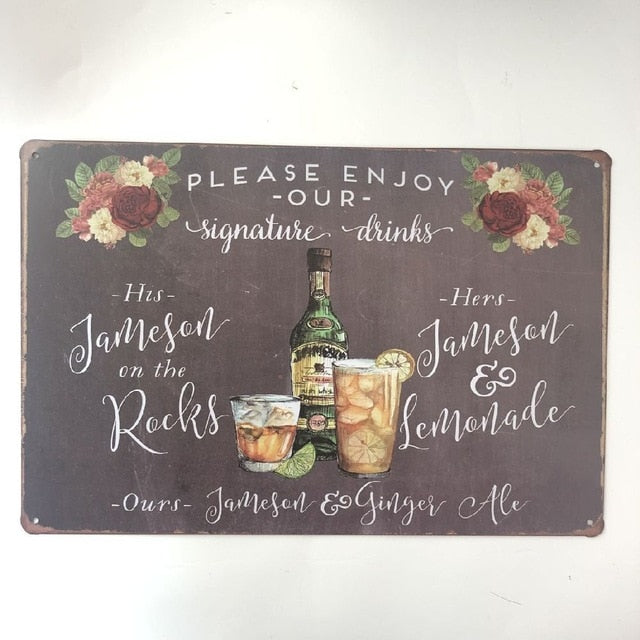 PLEASE ENJOY
-OUR-
signature drinks
-His-
Jameson
on the
Rocks
-Hers-
Jameson
&
Lemonade
-Ours- Jameson & Ginger Ale